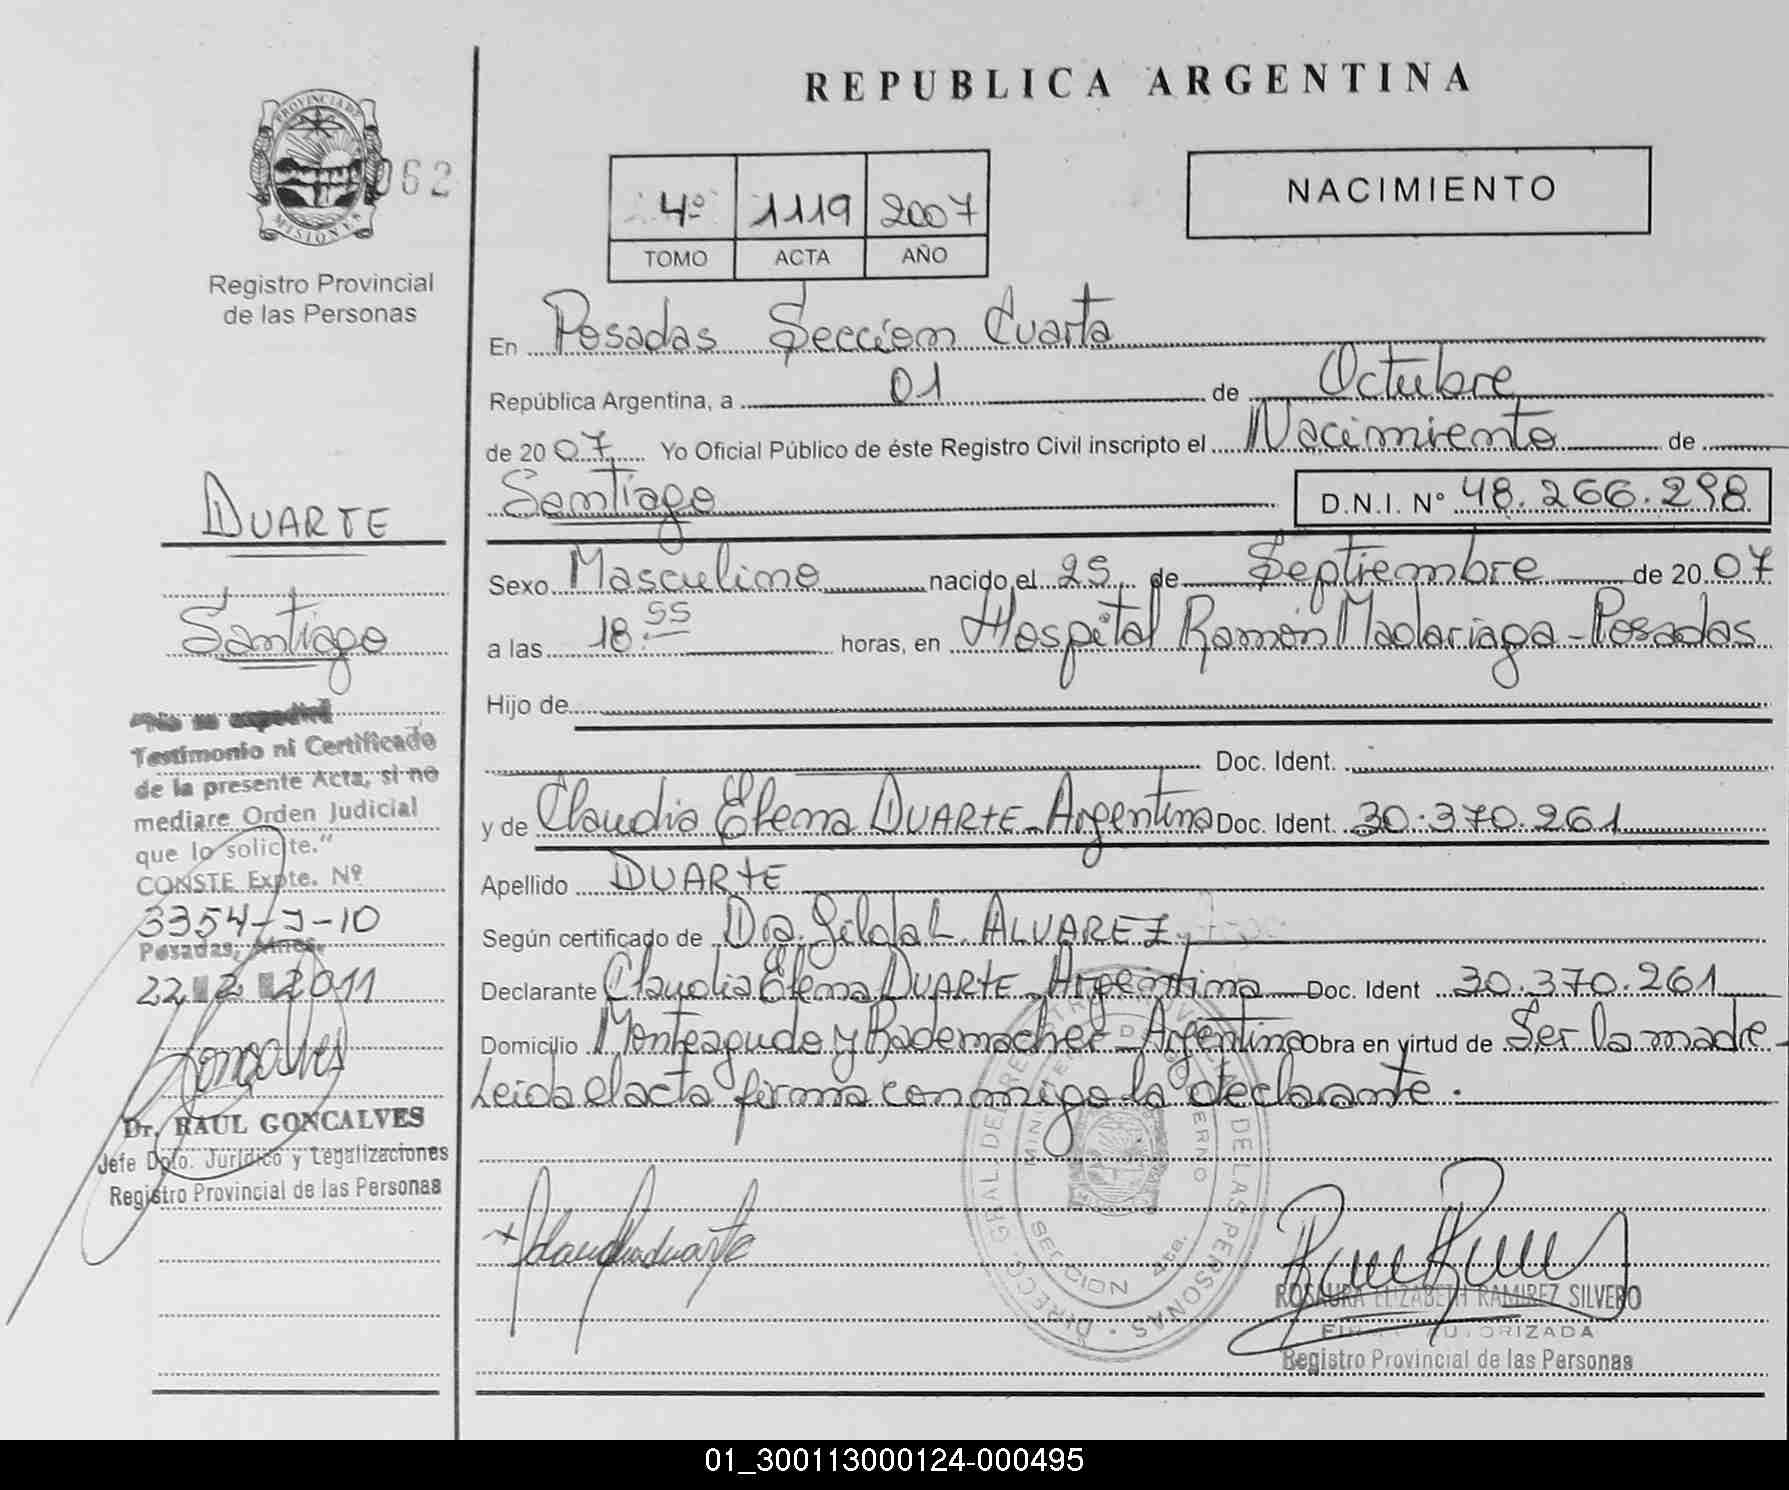 REPUBLICA ARGENTINA
PROVINCIA DE
MISIONES
062
Registro Provincial
de las Personas
4º 1119 2007
TOMO ACTA AÑO
NACIMIENTO
En Posadas Sección Cuarta
República Argentina, a 01 de Octubre
de 2007 Yo Oficial Público de éste Registro Civil inscripto el Nacimiento de
Santiago D.N.I. Nº 48.266.298
Sexo Masculino nacido el 25 de Septiembre de 2007
a las 18.55 horas, en Hospital Ramón Madariaga - Posadas
Hijo de
Doc. Ident.
y de Claudia Elena DUARTE - Argentina Doc. Ident. 30.370.261
Apellido DUARTE
Según certificado de Dra. Gilda L. ALVAREZ
Declarante Claudia Elena DUARTE - Argentina Doc. Ident 30.370.261
Domicilio Monteagudo y Rademacher - Argentina Obra en virtud de Ser la madre -
Leida el acta firma conmigo la declarante.
DUARTE
Santiago
"No se expedirá
Testimonio ni Certificado
de la presente Acta, si no
mediare Orden Judicial
que lo solicite."
CONSTE Expte. Nº
3354-J-10
Posadas, Mnes.
22 2 2011
Goncalves
Dr. RAUL GONCALVES
Jefe Dpto. Jurídico y Legalizaciones
Registro Provincial de las Personas
x Claudia duarte
DIRECC. GRAL DE REGISTRO PROVINCIAL DE LAS PERSONAS
SECCION 4ta.
ROSAURA ELIZABETH RAMIREZ SILVERO
FIRMA AUTORIZADA
Registro Provincial de las Personas
01_300113000124-000495